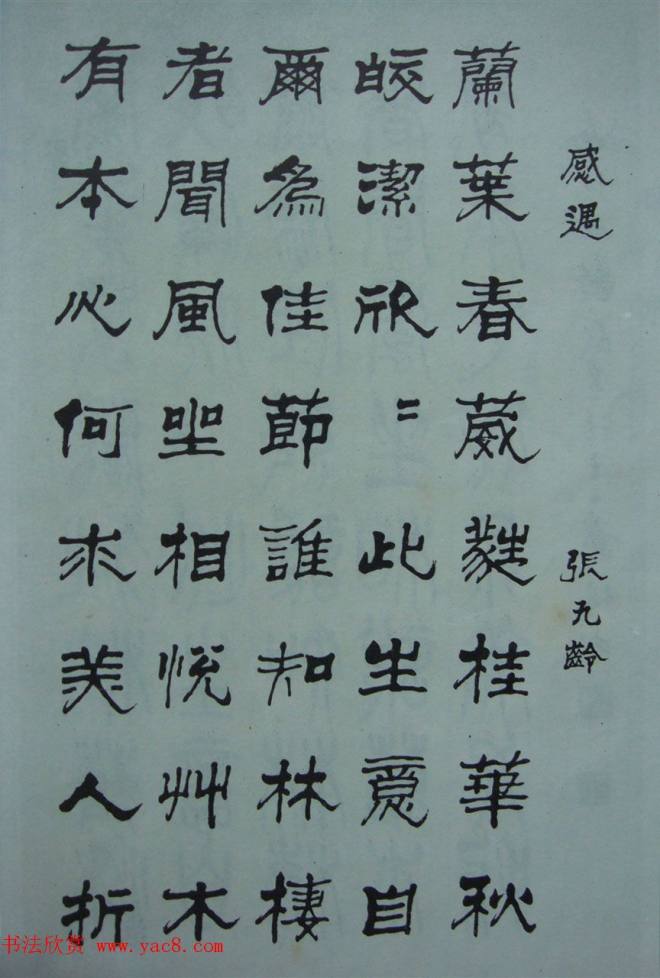 感遇 張九齡
蘭葉春葳蕤桂華秋
皎潔欣〻此生意自
爾爲佳節誰知林棲
者聞風坐相悅艸木
有本心何求美人折
书法欣赏 www.yac8.com